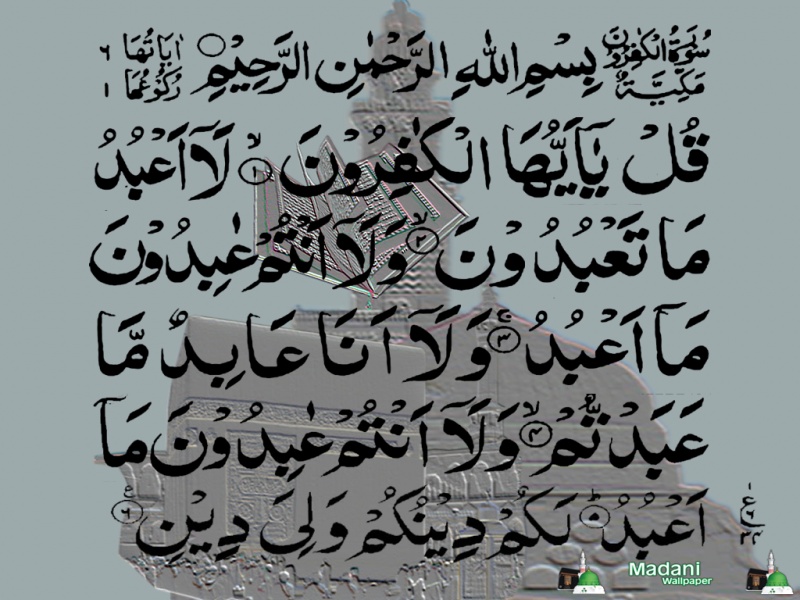 سُوْرَةُ الْكٰفِرُوْنَ مَكِّيَّةٌ بِسْمِ اللهِ الرَّحْمٰنِ الرَّحِيْمِ اٰيَاتُهَا ٦ رُكُوْعُهَا ١
قُلْ يٰۤاَيُّهَا الْكٰفِرُوْنَ ۙ﴿١﴾ لَاۤ اَعْبُدُ
مَا تَعْبُدُوْنَ ۙ﴿٢﴾ وَلَاۤ اَنْتُمْ عٰبِدُوْنَ
مَاۤ اَعْبُدُ ۚ﴿٣﴾ وَلَاۤ اَنَا عَابِدٌ مَّا
عَبَدْتُّمْ ۙ﴿٤﴾ وَلَاۤ اَنْتُمْ عٰبِدُوْنَ مَاۤ
اَعْبُدُ ؕ﴿٥﴾ لَكُمْ دِيْنُكُمْ وَلِيَ دِيْنِ ۚ﴿٦﴾
Madani
Wallpaper